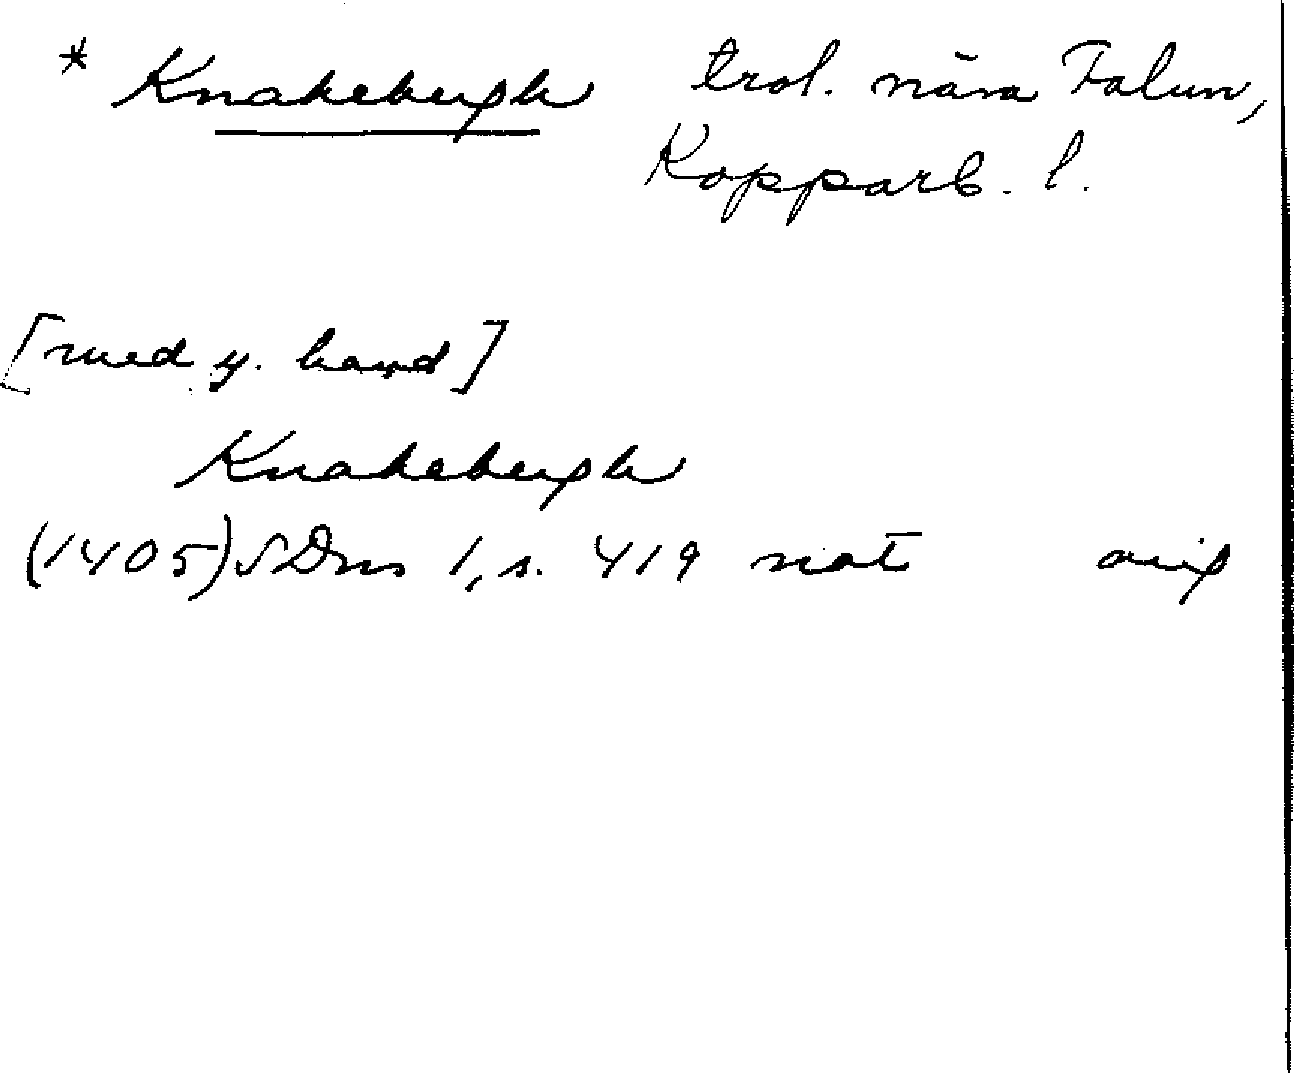 * Knakebergh trol. nära Falun,
Kopparb. l.
[med y. hand]
Knakebergh
(1405) SDns 1, s. 419 not orig